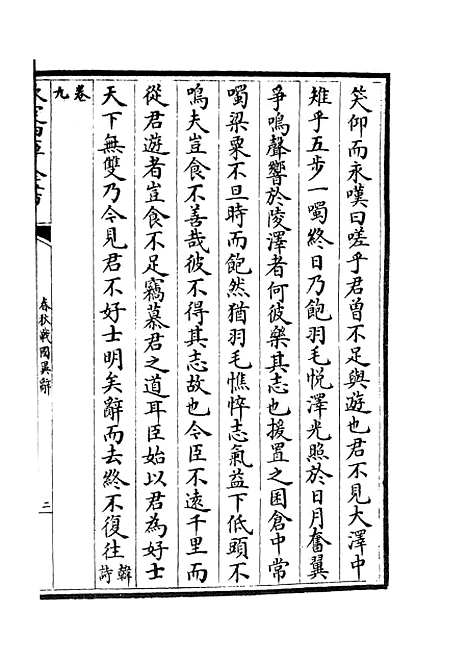 笑仰而永嘆曰嗟乎君曽不足與遊也君不見大澤中
雉乎五步一噣終日乃飽羽毛悅澤光照於日月奮翼
爭鳴聲響於陵澤者何彼樂其志也援置之囷倉中常
噣梁粟不旦時而飽然猶羽毛憔悴志氣益下低頭不
鳴夫豈食不善哉彼不得其志故也今臣不遠千里而
從君遊者豈食不足竊慕君之道耳臣始以君為好士
天下無雙乃今見君不好士明矣辭而去終不復往韓詩
卷九
春秋戰國異辭
三